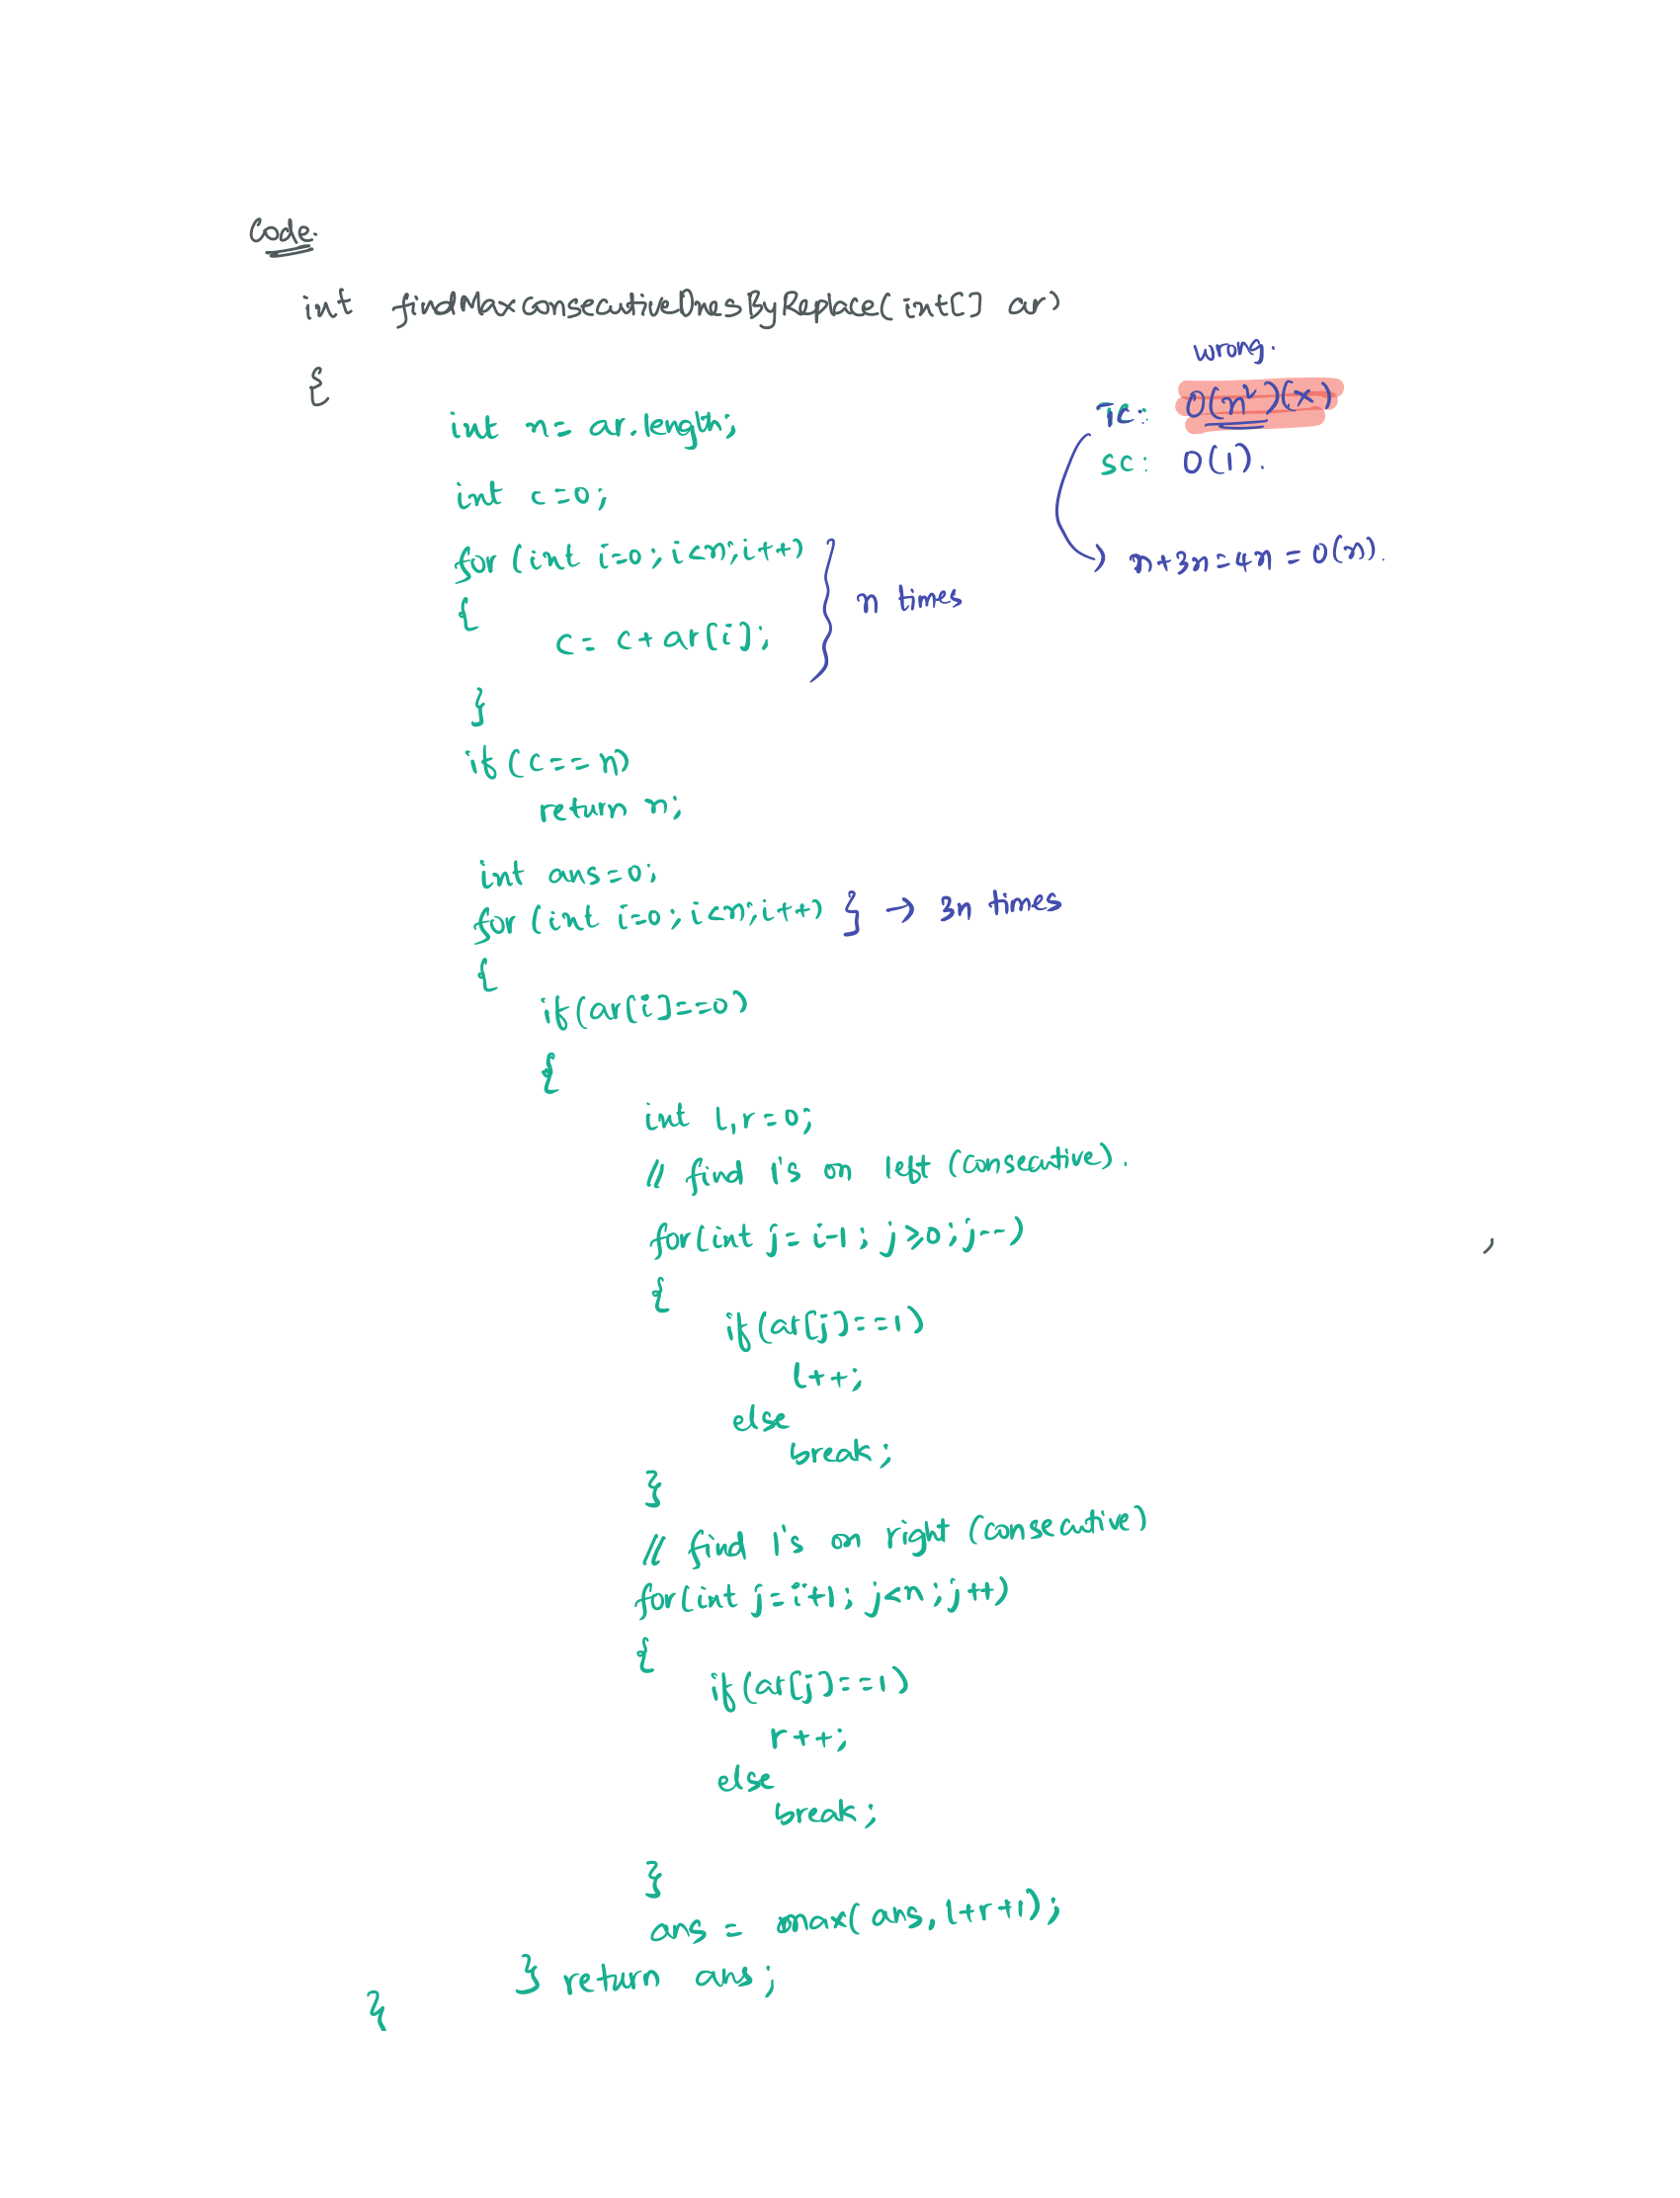 Code:
int findMaxConsecutiveOnesByReplace(int[] ar)
{
wrong.
int n= ar.length;
TC: O(n²)(x)
SC: O(1).
int c=0;
for (int i=0; i<n; i++)
n+3n=4n = O(n).
{
n times
c= c+ar[i];
}
if (c== n)
return n;
int ans=0;
for (int i=0; i<n; i++) } → 3n times
{
if(ar[i]==0)
{
int l,r=0;
// find 1's on left (consecutive).
for(int j= i-1; j≥0; j--)
{
if(ar[j]==1)
l++;
else
break;
}
// find 1's on right (consecutive)
for(int j=i+1; j<n; j++)
{
if(ar[j]==1)
r++;
else
break;
}
ans = max(ans, l+r+1);
} return ans;
}